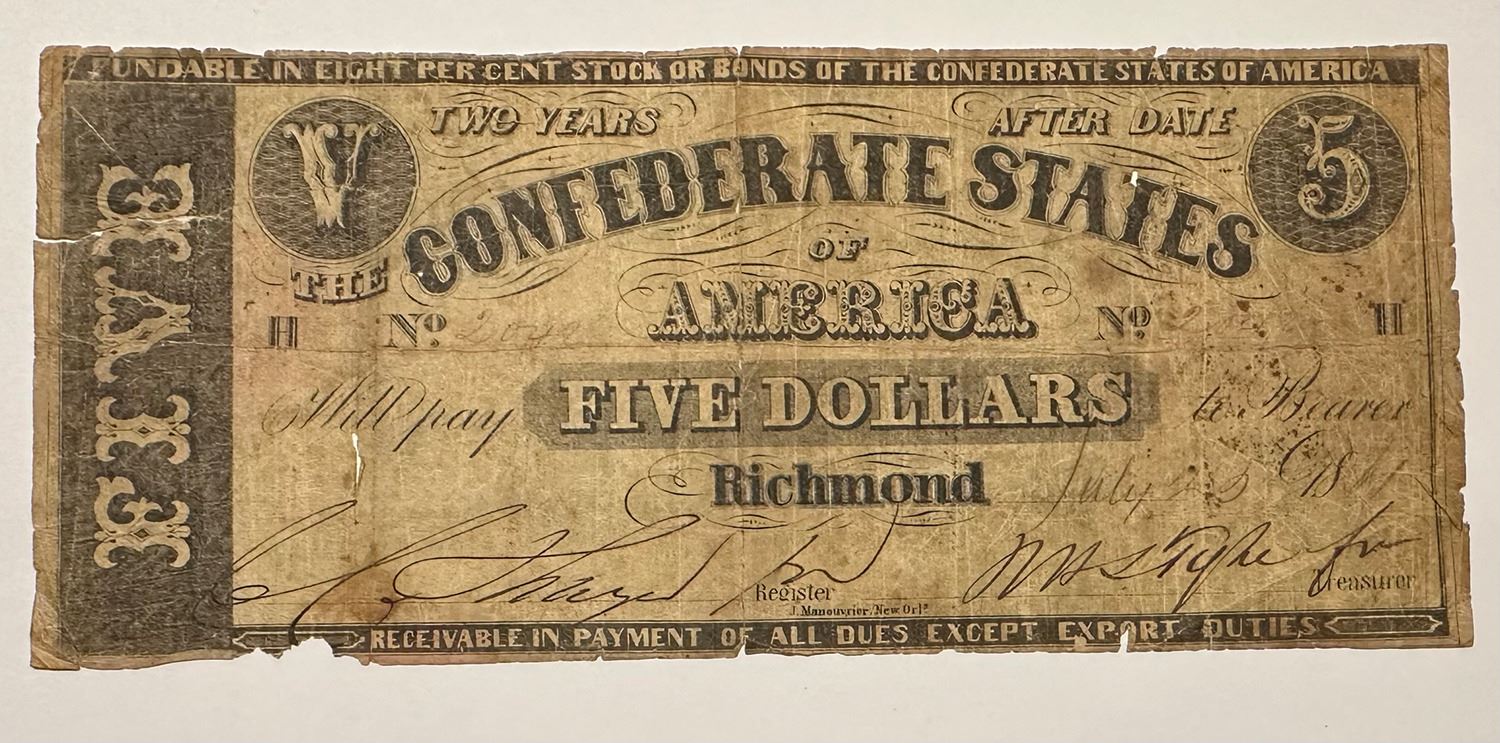 FUNDABLE IN EIGHT PER CENT STOCK OR BONDS OF THE CONFEDERATE STATES OF AMERICA
FIVE
V
TWO YEARS AFTER DATE
5
THE CONFEDERATE STATES
OF
AMERICA
H No. No. H
Will pay FIVE DOLLARS to Bearer
Richmond July 25 18
for
Register
J. Manouvrier, New Orls
for
Treasurer
RECEIVABLE IN PAYMENT OF ALL DUES EXCEPT EXPORT DUTIES